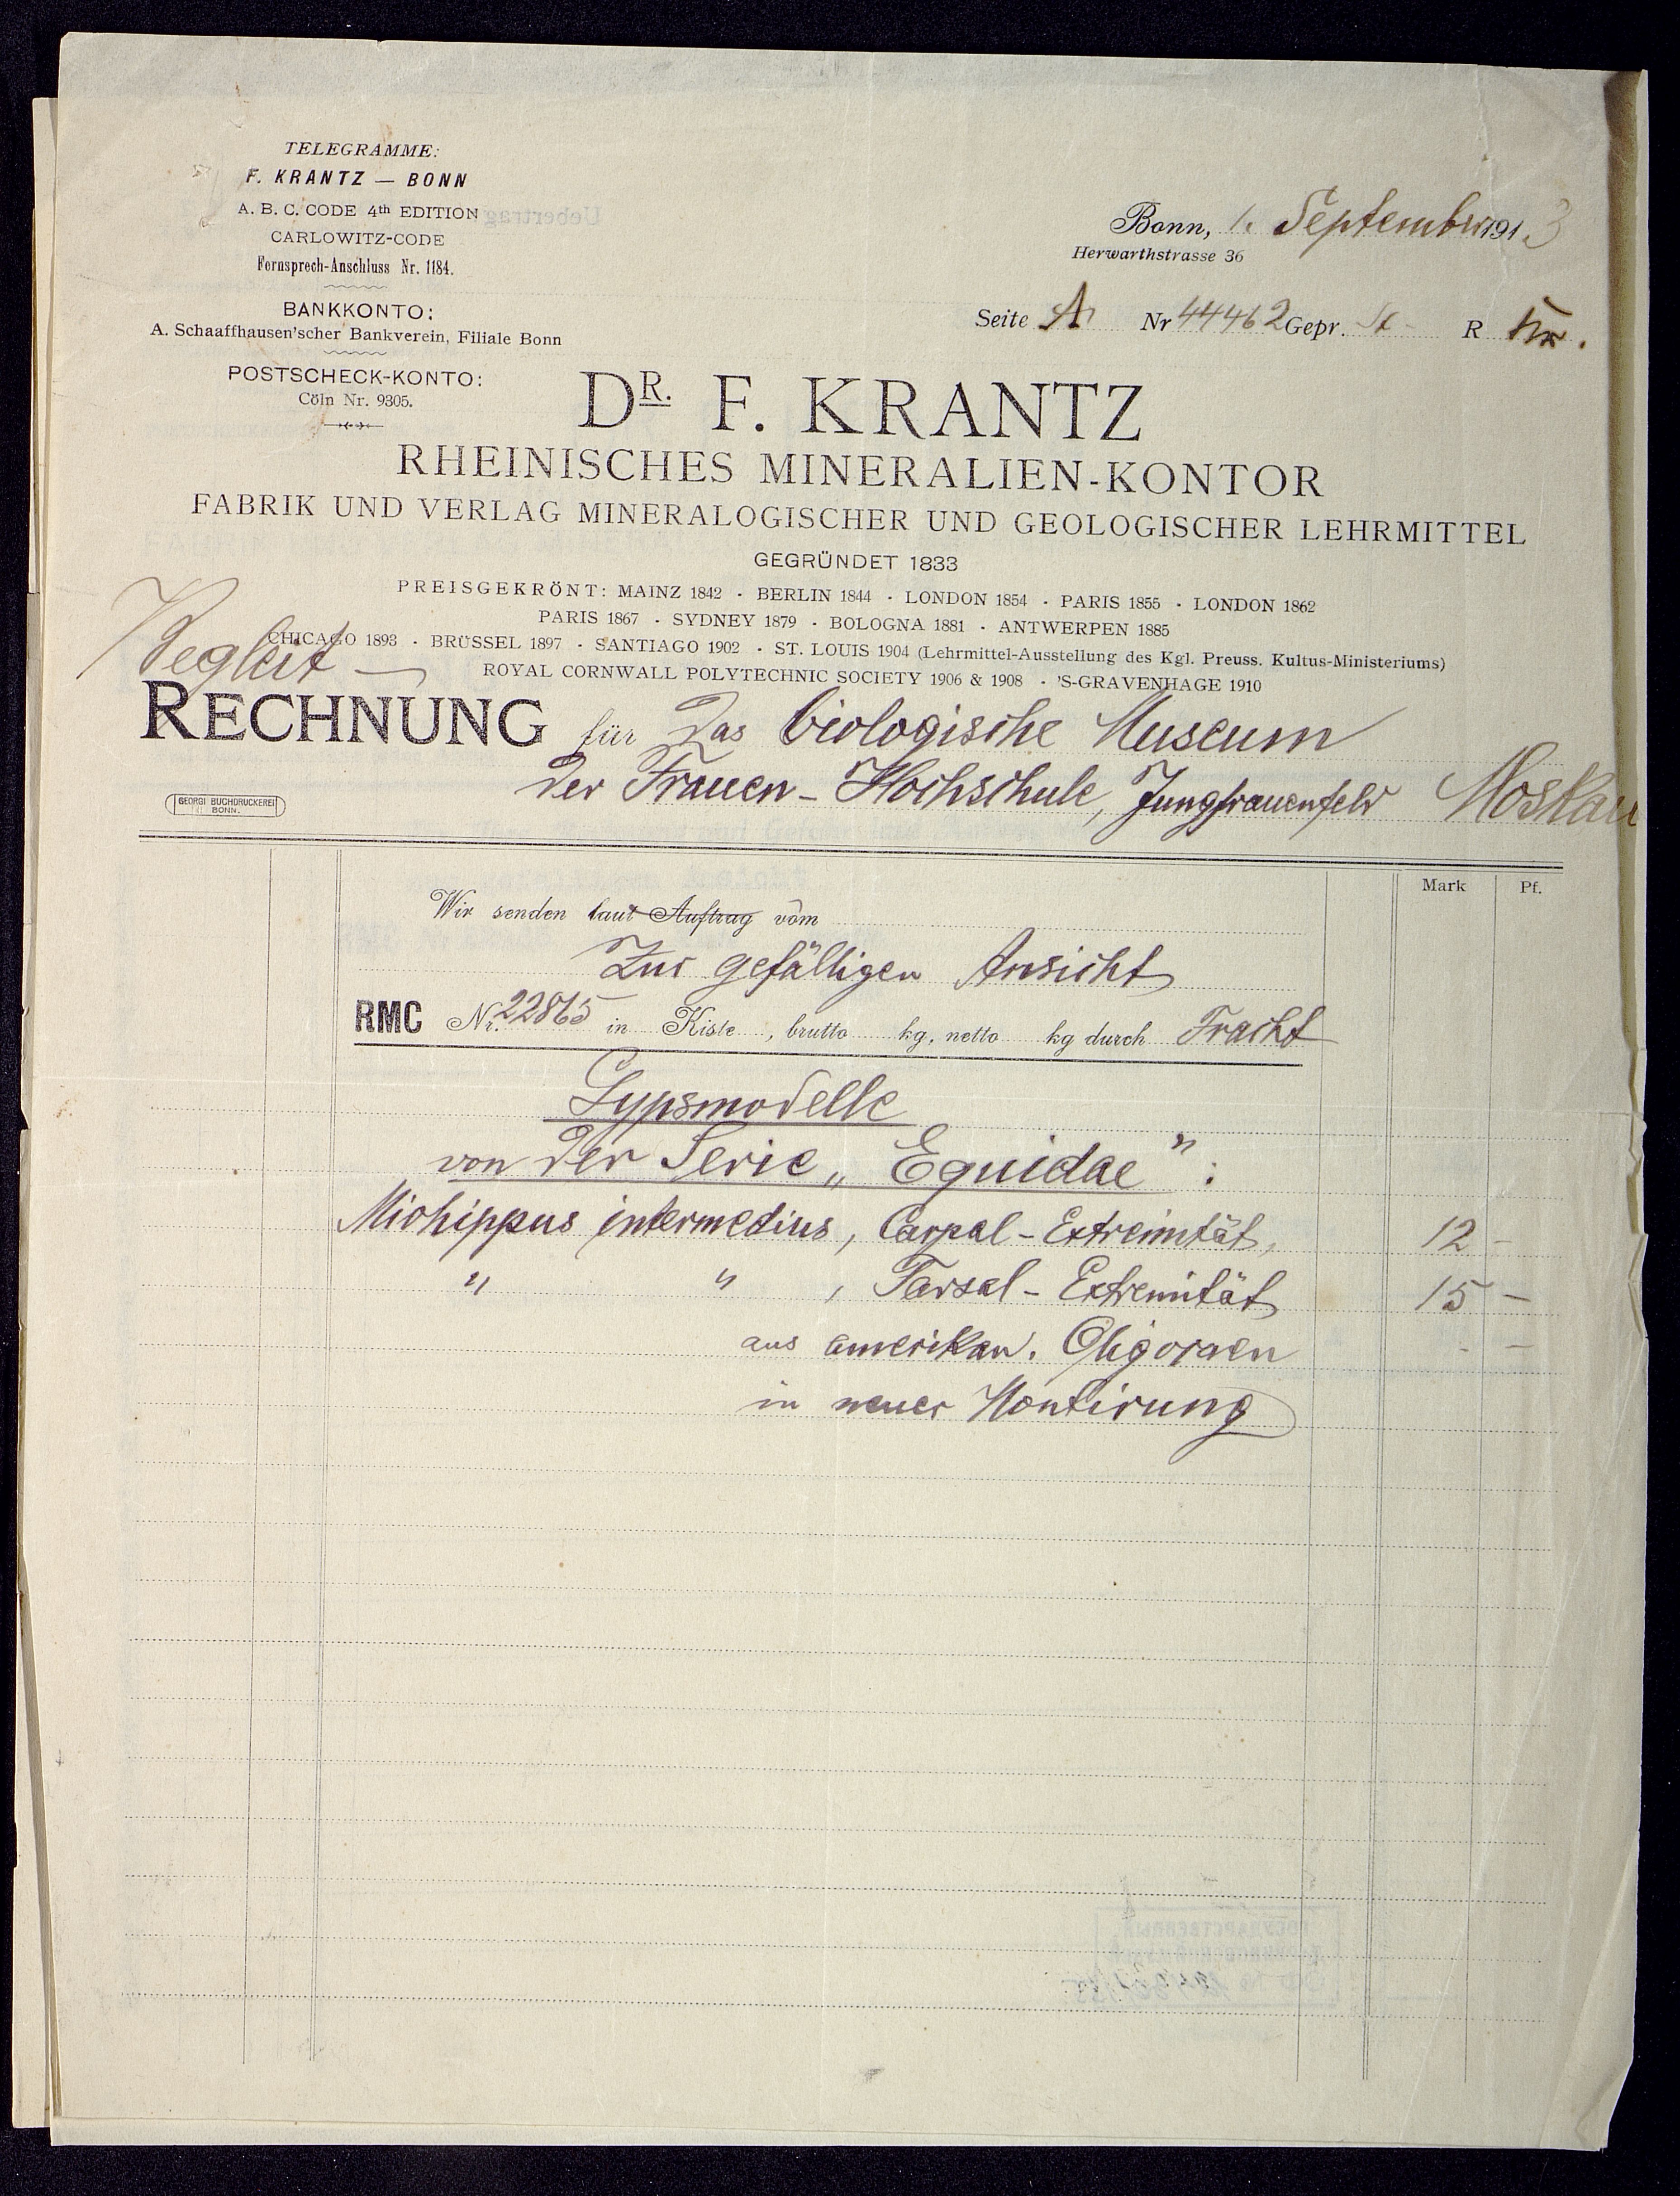 TELEGRAMME:
F. KRANTZ — BONN
A. B. C. CODE 4th EDITION
CARLOWITZ-CODE
Fernsprech-Anschluss Nr. 1184.
BANKKONTO:
A. Schaaffhausen'scher Bankverein, Filiale Bonn
POSTSCHECK-KONTO:
Cöln Nr. 9305.
Bonn, 1. September 1913
Herwarthstrasse 36
Seite Nr 44462 Gepr. R
DR. F. KRANTZ
RHEINISCHES MINERALIEN-KONTOR
FABRIK UND VERLAG MINERALOGISCHER UND GEOLOGISCHER LEHRMITTEL
GEGRÜNDET 1833
PREISGEKRÖNT: MAINZ 1842 · BERLIN 1844 · LONDON 1854 · PARIS 1855 · LONDON 1862
PARIS 1867 · SYDNEY 1879 · BOLOGNA 1881 · ANTWERPEN 1885
CHICAGO 1893 · BRÜSSEL 1897 · SANTIAGO 1902 · ST. LOUIS 1904 (Lehrmittel-Ausstellung des Kgl. Preuss. Kultus-Ministeriums)
ROYAL CORNWALL POLYTECHNIC SOCIETY 1906 & 1908 · 'S-GRAVENHAGE 1910
Begleit —
RECHNUNG für das biologische Museum
der Frauen-Hochschule, Jungfrauenfeld Moskau
GEORGI BUCHDRUCKEREI
BONN.
Mark Pf.
Wir senden laut Auftrag vom
Zur gefälligen Ansicht
RMC Nr. 22865 in Kiste , brutto kg, netto kg durch Fracht
Gypsmodelle
von der Serie „Equidae":
Miohippus intermedius, Carpal-Extremität, 12 -
" " , Tarsal-Extremität 15 -
aus amerikan. Oligocaen - -
in neuer Montirung